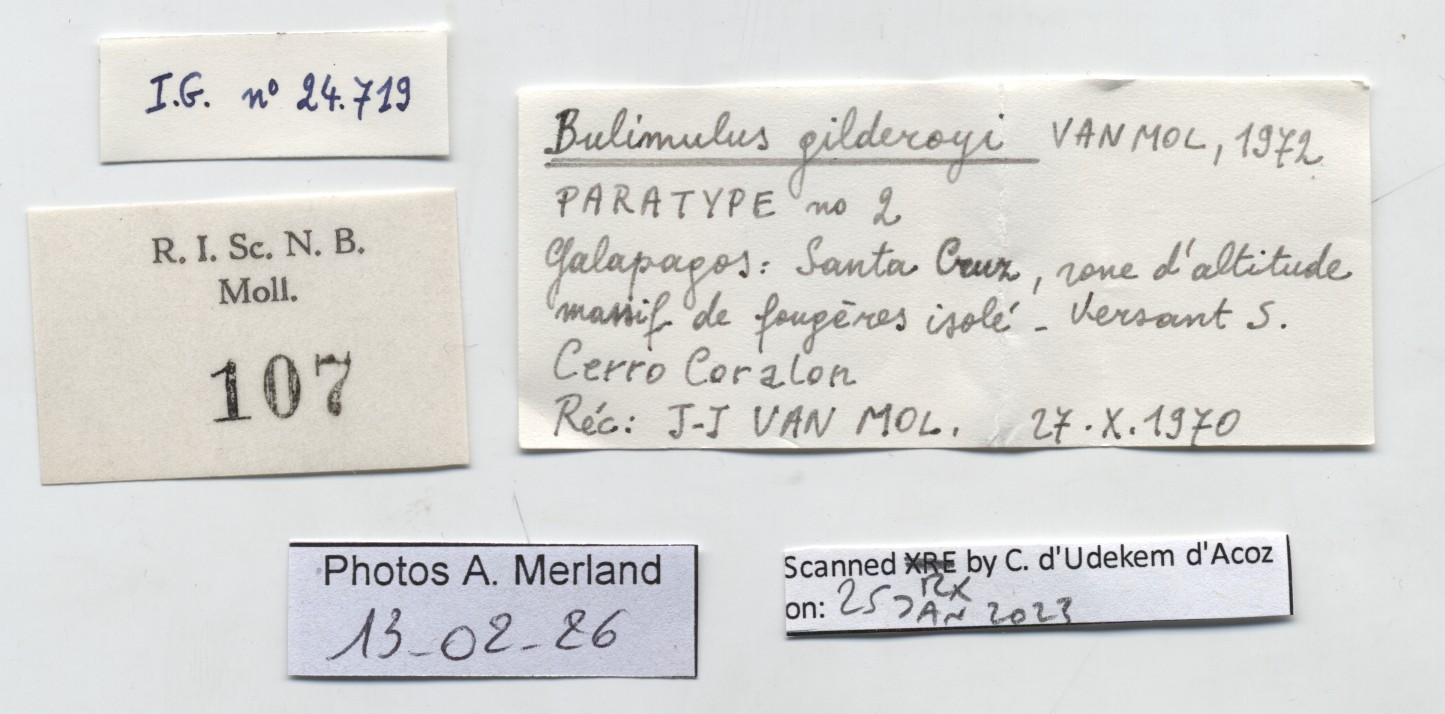 I.G. nº 24.719
R. I. Sc. N. B.
Moll.
107
Bulimulus gilderoyi VAN MOL, 1972
PARATYPE no 2
Galapagos: Santa Cruz, zone d'altitude
massif de fougères isolé - Versant S.
Cerro Coralon
Réc: J-J VAN MOL. 27.X.1970
Photos A. Merland
13-02-26
Scanned XRE by C. d'Udekem d'Acoz
RX
on: 25 JAN 2023